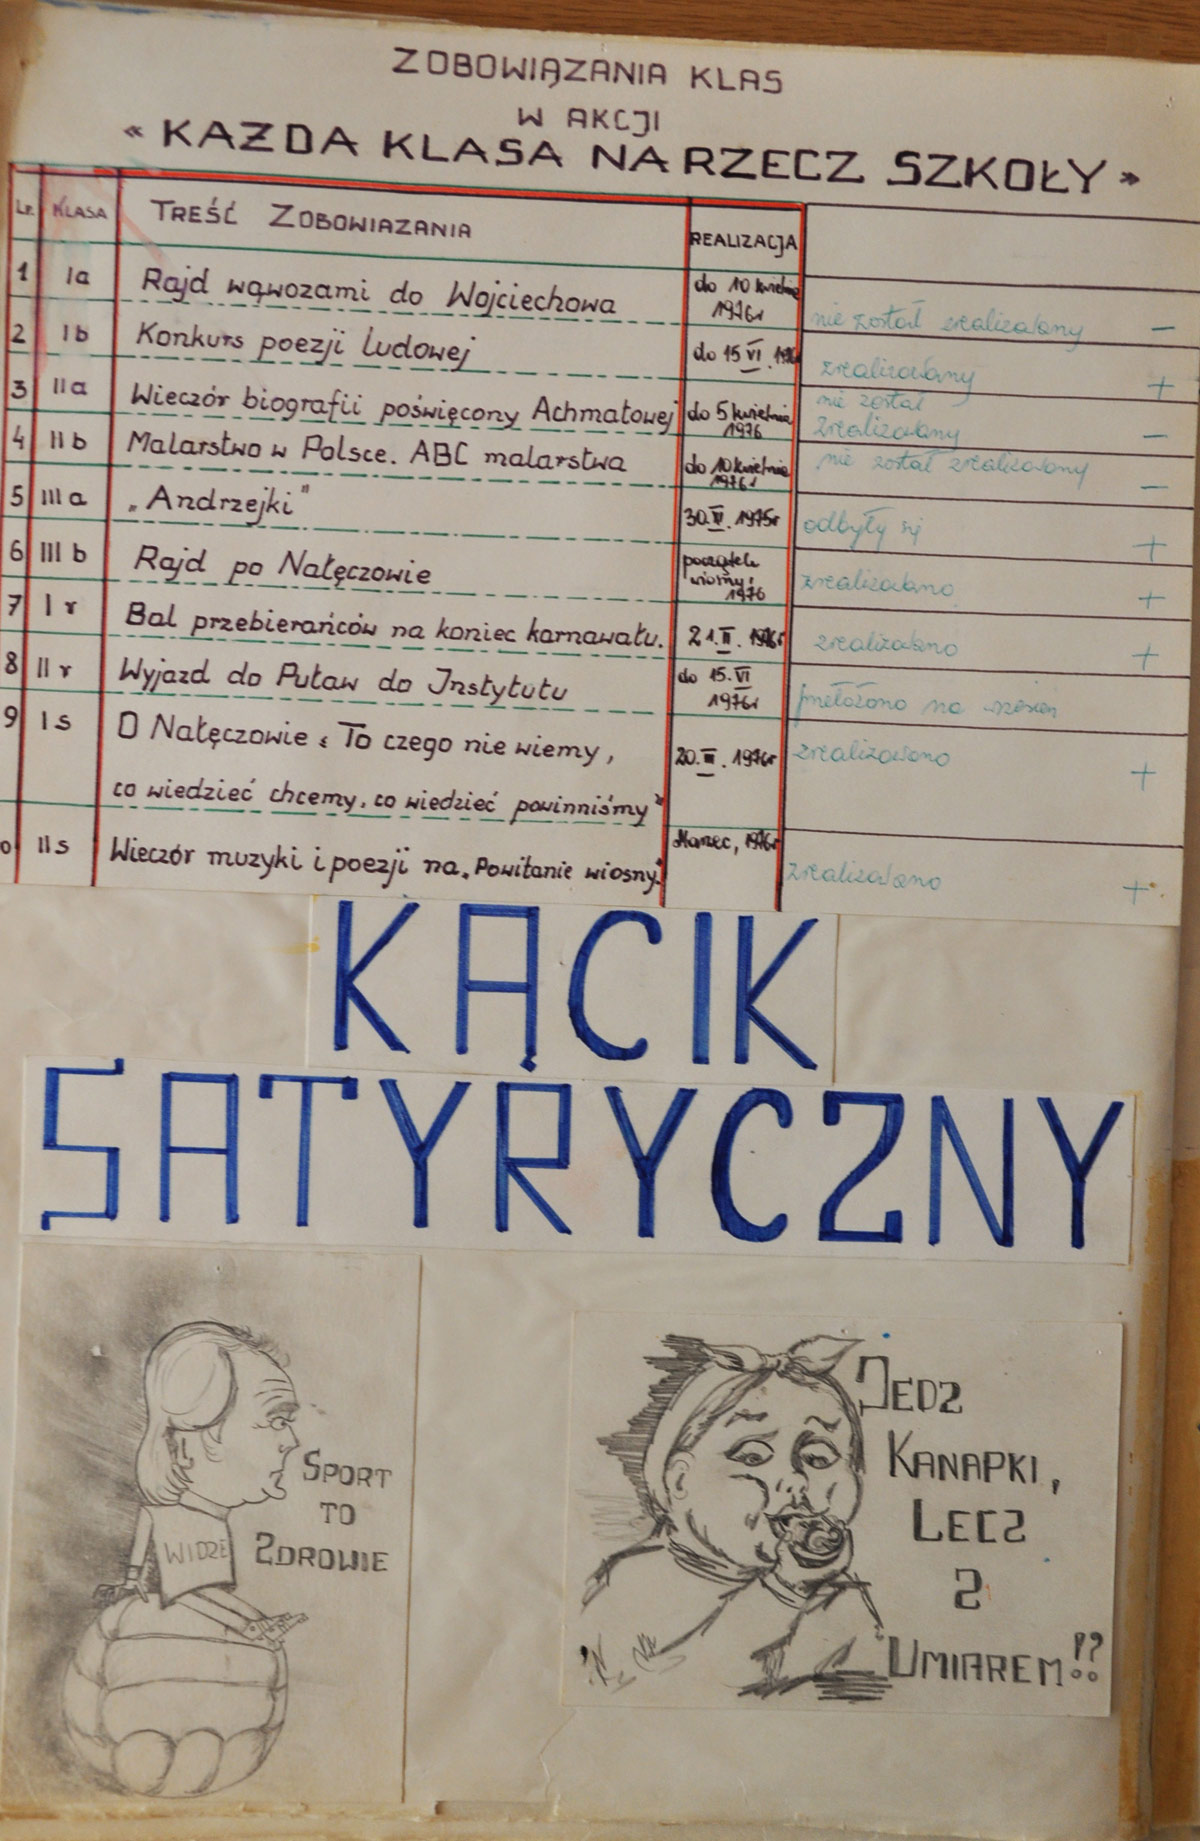 ZOBOWIĄZANIA KLAS
W AKCJI
« KAŻDA KLASA NA RZECZ SZKOŁY »
Lp. KLASA TREŚĆ ZOBOWIAZANIA REALIZACJA
1 Ia Rajd wąwozami do Wojciechowa do 10 kwietnia 1976r nie został zrealizowany –
2 Ib Konkurs poezji ludowej do 15 VI. 1976 zrealizowany +
3 IIa Wieczór biografii poświęcony Achmatowej do 5 kwietnia 1976 nie został zrealizowany –
4 IIb Malarstwo w Polsce. ABC malarstwa do 10 kwietnia 1976r nie został zrealizowany –
5 IIIa „Andrzejki" 30. XI. 1975r odbyły się +
6 IIIb Rajd po Nałęczowie początek wiosny 1976 zrealizowano +
7 Ir Bal przebierańców na koniec karnawału. 21. II. 1976r zrealizowano +
8 IIr Wyjazd do Puław do Instytutu do 15. VI 1976r przełożono na wrzesień
9 Is O Nałęczowie „To czego nie wiemy,
co wiedzieć chcemy, co wiedzieć powinniśmy" 20. III. 1976r zrealizowano +
0 IIs Wieczór muzyki i poezji na „Powitanie wiosny." Marzec, 1976r zrealizowano +
KĄCIK
SATYRYCZNY
SPORT
TO
ZDROWIE
WIDZE
JEDZ
KANAPKI,
LECZ
Z
UMIAREM!?